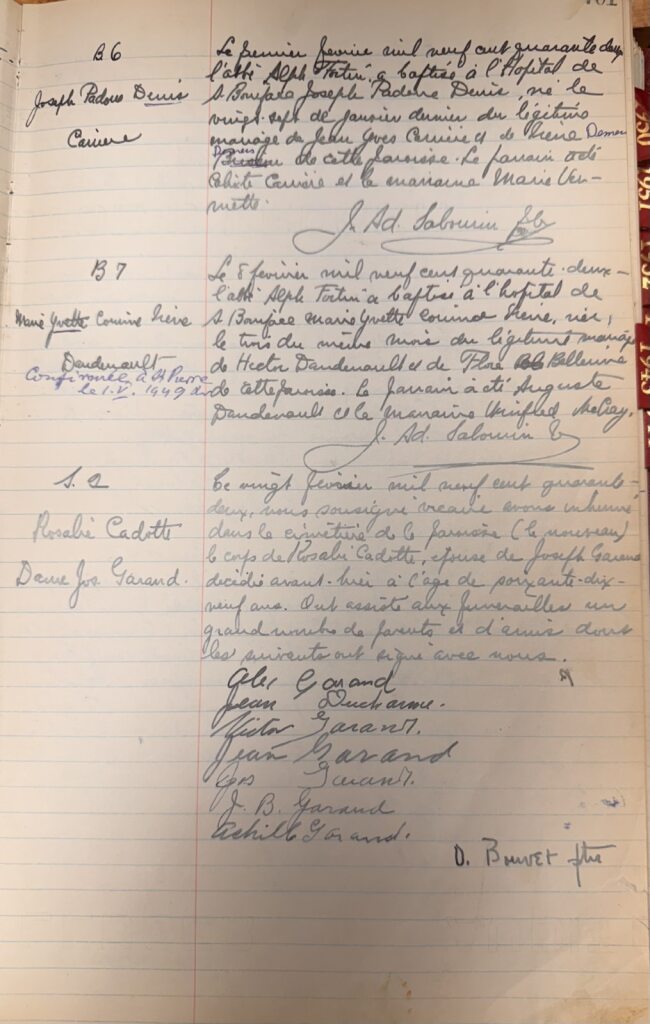 B 6
Joseph Padoue Denis
Carriere
Le premier fevrier mil neuf cent quarante deux
l'abbé Alph Fortin, a baptisé à l'hopital de
St Boniface Joseph Padoue Denis, né le
vingt-sept de janvier dernier du légitime
mariage de Jean Yves Carrière et de Irene
de cette paroisse. Le parrain a été
Carrière et la marraine Marie Ver-
mette.
J. Ad. Sabourin
B 7
Marie Yvette Corinne Irène
Dandenault
Confirmée à St Pierre
le 1.V. 1949
Le 8 fevrier mil neuf cent quarante-deux-
l'abbé Alph Fortin a baptisé à l'hopital de
St Boniface Marie Yvette Corinne Irene, née,
le trois du même mois du légitime mariage
de Hector Dandenault et de Flore
de cette paroisse. Le parrain a été Auguste
Dandenault et la marraine Winifred McCray.
J. Ad. Sabourin
S. 2
Rosalie Cadotte
Dame Jos. Garand.
Ce vingt fevrier mil neuf cent quarante-
deux, nous soussigné vicaire avons inhumé
dans le cimetière de la paroisse (le nouveau)
le corps de Rosalie Cadotte, épouse de Joseph Garand
décédée avant-hier à l'âge de soixante-dix-
neuf ans. Ont assisté aux funérailles un
grand nombre de parents et d'amis dont
les suivants ont signé avec nous.
Alex Garand
Jean Ducharme.
Victor Garand.
Jean Garand
Jos Garand.
J. B. Garand
Achille Garand.
D. Bouvet ptre